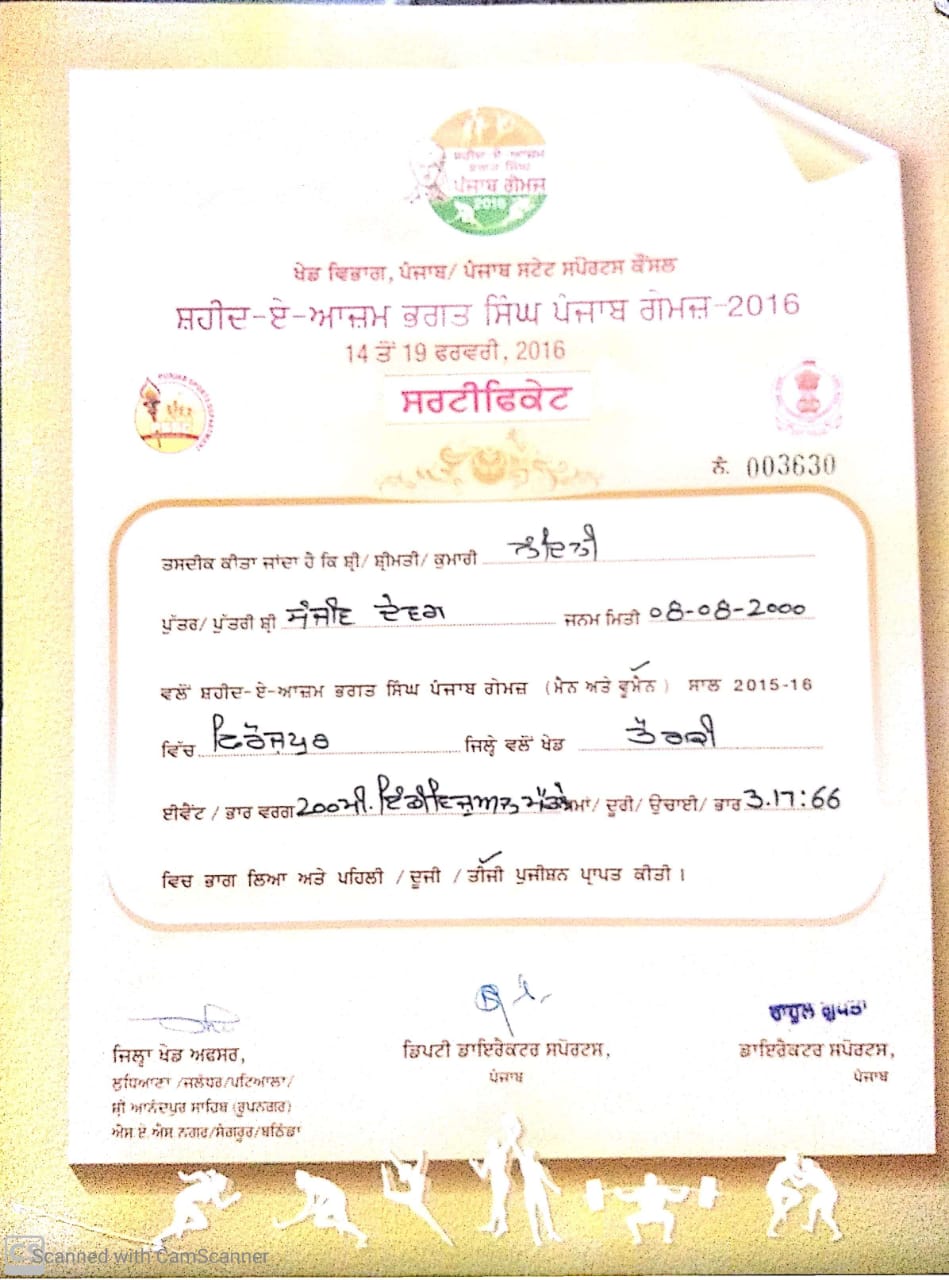 ਸ਼ਹੀਦ-ਏ-ਆਜ਼ਮ
ਭਗਤ ਸਿੰਘ
ਪੰਜਾਬ ਗੇਮਜ਼
2016
ਖੇਡ ਵਿਭਾਗ, ਪੰਜਾਬ/ ਪੰਜਾਬ ਸਟੇਟ ਸਪੋਰਟਸ ਕੌਂਸਲ
ਸ਼ਹੀਦ-ਏ-ਆਜ਼ਮ ਭਗਤ ਸਿੰਘ ਪੰਜਾਬ ਗੇਮਜ਼-2016
14 ਤੋਂ 19 ਫਰਵਰੀ, 2016
ਸਰਟੀਫਿਕੇਟ
PUNJAB SPORTS DEPARTMENT
ਨੰ. 003630
ਤਸਦੀਕ ਕੀਤਾ ਜਾਂਦਾ ਹੈ ਕਿ ਸ਼੍ਰੀ/ ਸ਼੍ਰੀਮਤੀ/ ਕੁਮਾਰੀ ਨੰਦਿਨੀ
ਪੁੱਤਰ/ ਪੁੱਤਰੀ ਸ਼੍ਰੀ ਸੰਜੀਵ ਦੇਵਗ ਜਨਮ ਮਿਤੀ 08-08-2000
ਵਲੋਂ ਸ਼ਹੀਦ-ਏ-ਆਜ਼ਮ ਭਗਤ ਸਿੰਘ ਪੰਜਾਬ ਗੇਮਜ਼ (ਮੈਨ ਅਤੇ ਵੂਮੈਨ) ਸਾਲ 2015-16
ਵਿੱਚ ਫਿਰੋਜ਼ਪੁਰ ਜਿਲ੍ਹੇ ਵਲੋਂ ਖੇਡ ਤੈਰਾਕੀ
ਈਵੈਂਟ / ਭਾਰ ਵਰਗ 200ਮੀ. ਇੰਡੀਵਿਜੁਅਲ ਮੈਡਲੇ ਸਮਾਂ/ ਦੂਰੀ/ ਉਚਾਈ/ ਭਾਰ 3.17:66
ਵਿਚ ਭਾਗ ਲਿਆ ਅਤੇ ਪਹਿਲੀ / ਦੂਜੀ / ਤੀਜੀ ਪੁਜੀਸ਼ਨ ਪ੍ਰਾਪਤ ਕੀਤੀ।
ਜਿਲ੍ਹਾ ਖੇਡ ਅਫਸਰ,
ਲੁਧਿਆਣਾ /ਜਲੰਧਰ/ਪਟਿਆਲਾ/
ਸ਼੍ਰੀ ਆਨੰਦਪੁਰ ਸਾਹਿਬ (ਰੂਪਨਗਰ)
ਐਸ.ਏ.ਐਸ ਨਗਰ/ਸੰਗਰੂਰ/ਬਠਿੰਡਾ
ਡਿਪਟੀ ਡਾਇਰੈਕਟਰ ਸਪੋਰਟਸ,
ਪੰਜਾਬ
ਰਾਹੁਲ ਗੁਪਤਾ
ਡਾਇਰੈਕਟਰ ਸਪੋਰਟਸ,
ਪੰਜਾਬ
CS Scanned with CamScanner